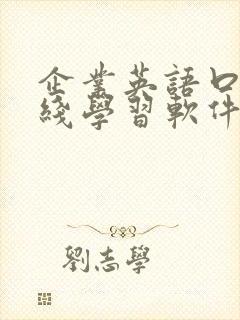 企業英語口
綫學習軟件
劉志學